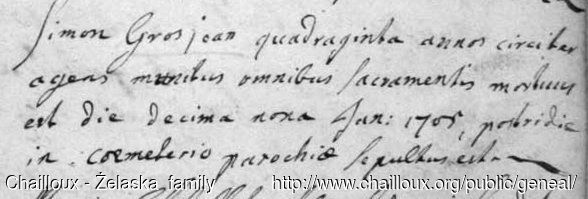 Simon Grosjean quadraginta annos circiter
agens munitus omnibus sacramentis mortuus
est die decima nona Jan: 1705, postridie
in coemeterio parochiæ sepultus est
Chailloux - Żelaska family http://www.chailloux.org/public/geneal/